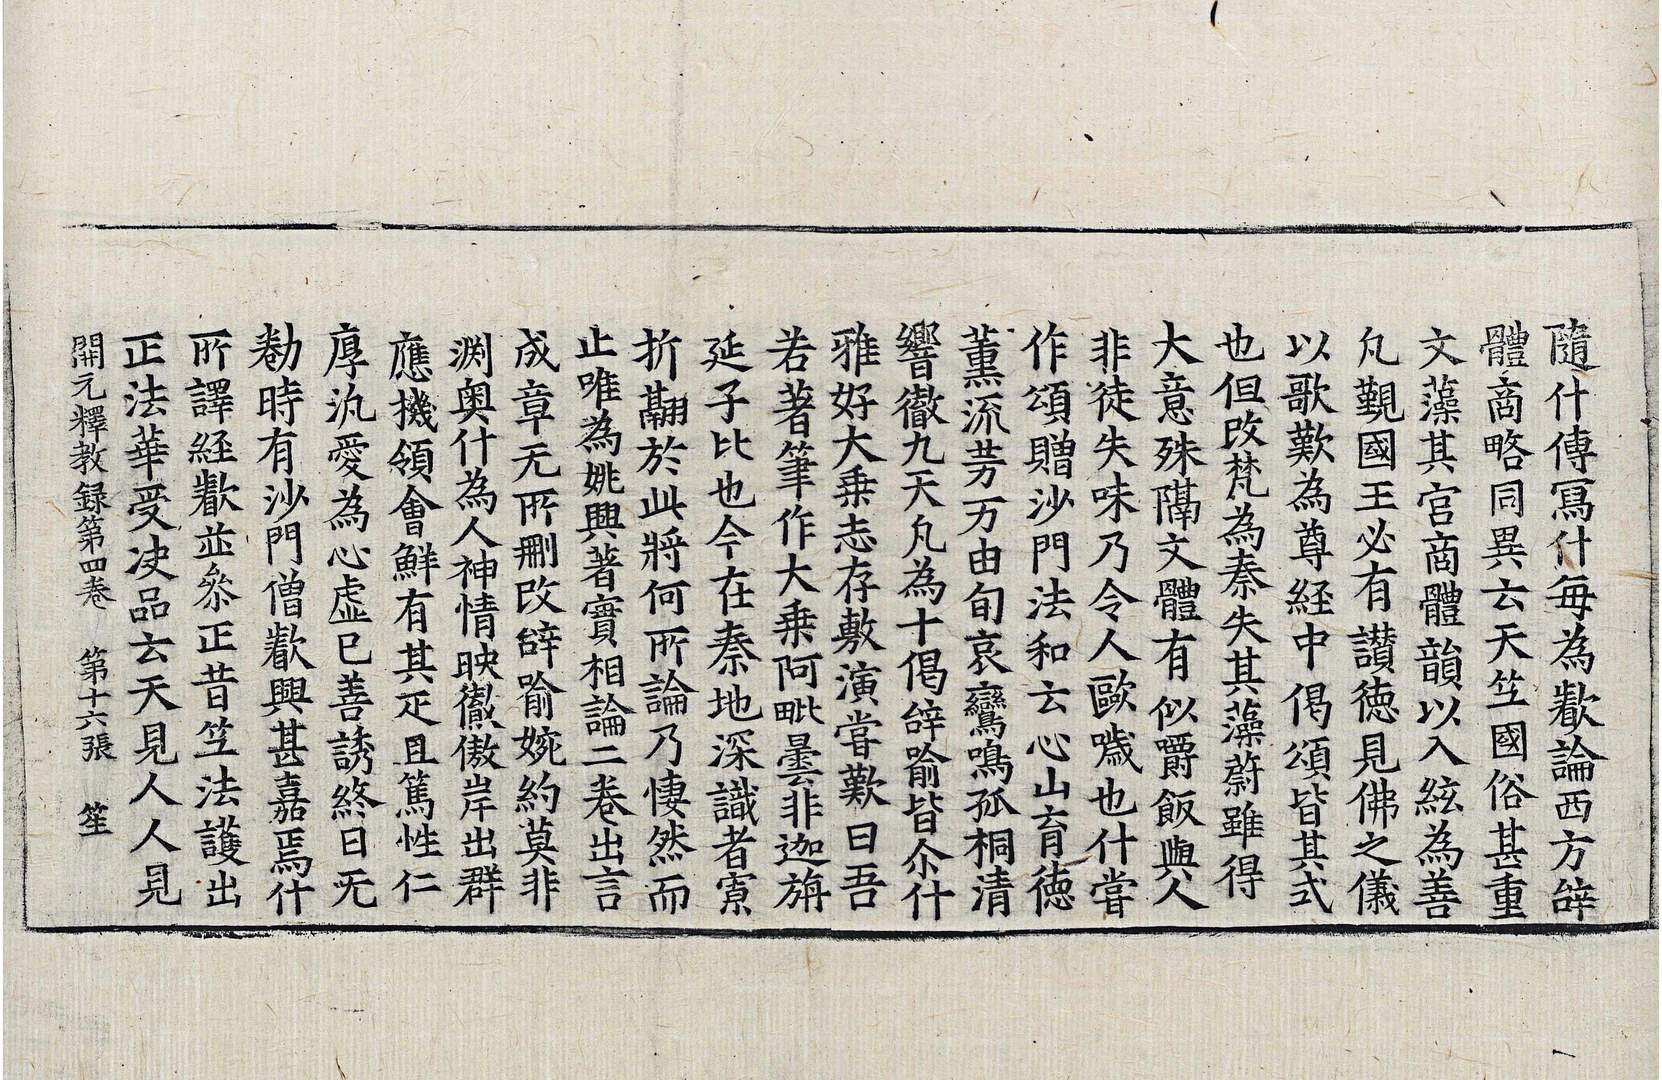 隨什傳寫什每為叡論西方辝
體商略同異云天竺國俗甚重
文藻其宮商體韻以入絃為善
凡覲國王必有讃徳見佛之儀
以歌歎為尊経中偈頌皆其式
也但改梵為秦失其藻蔚雖得
大意殊隔文體有似嚼飯與人
非徒失味乃令人歐噦也什甞
作頌贈沙門法和云心山育徳
薰流芳万由旬哀鸞鳴孤桐清
響徹九天凡為十偈辝喻皆尒什
雅好大乗志存敷演甞歎曰吾
若著筆作大乗阿毗曇非迦旃
延子比也今在秦地深識者寡
折翮於此將何所論乃悽然而
止唯為姚興著實相論二卷出言
成章无所刪改辝喻婉約莫非
渊奥什為人神情映徹傲岸出群
應機領會鮮有其疋且篤性仁
厚汎愛為心虛已善誘終日无
勌時有沙門僧叡興甚嘉焉什
所譯経叡並叅正昔竺法護出
正法華受决品云天見人人見
開元釋教録第四卷　第十六張　笙